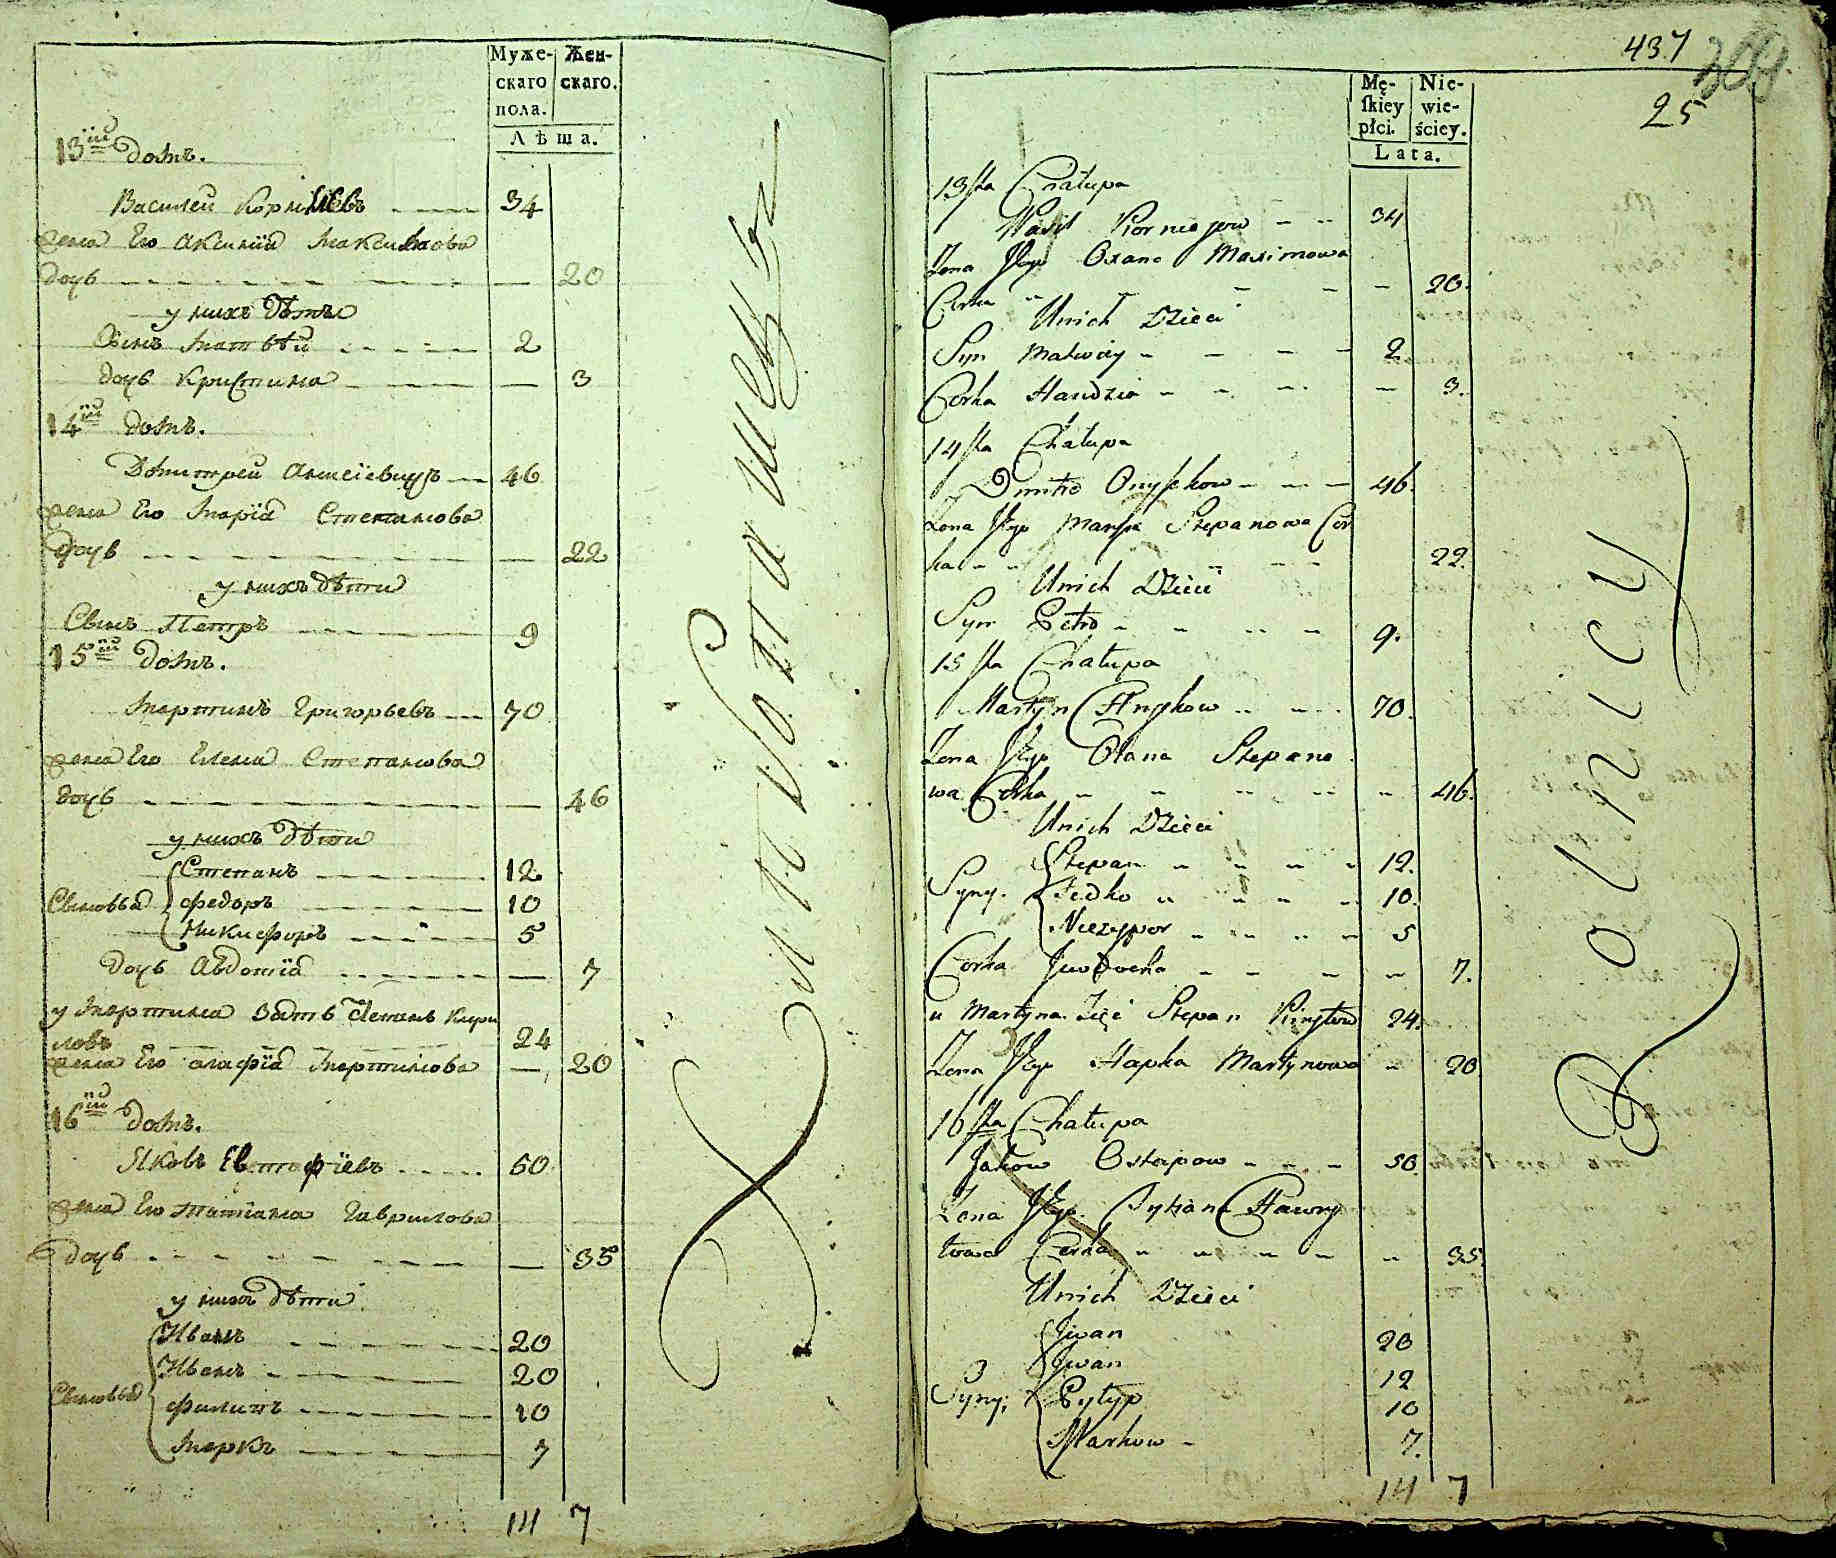 Муже-
скаго
пола.
Жен-
скаго.
Лѣта.
13ій домъ.
Василей Корнѣевъ 34
жена Его Аксинія Максимова
дочь 20
у нихъ дѣти
Сынъ Матвѣй 2
дочь Кристина 3
14ій домъ.
Дмитрей 46
жена Его Марія Степанова
дочь 22
у нихъ дѣти
Сынъ Петръ 9
15ій домъ.
Мартинъ Григорьевъ 70
жена Его Елена Степанова
дочь 46
у нихъ дѣти
Степанъ 12
Сыновья Федоръ 10
Никифоръ 5
дочь Авдотія 7
у Мартина Зять Степанъ Кири
ловъ 24
жена Его Агафія Мартинова 20
16ій домъ.
Яковъ Евстафіевъ 50
жена Его Татіана Гаврилова
дочь 35
у нихъ дѣти
Иванъ 20
Иванъ 20
Сыновья Филипъ 10
Марко 7
14 7
437
25
Mę-
ſkiey
płci.
Nie-
wie-
ściey.
Lata.
13sta Chałupa
Wasil Korneyow 34
Żona Jego Oxana Maximowa
Corka 20.
Unich Dzieci
Syn Matwiy 2
Corka Handzia 3.
14sta Chałupa
Dmitro Onyszkow 46.
Żona Jego Marya Stepanowa Cor
ka 22.
Unich Dzieci
Syn Petro 9.
15sta Chałupa
Martyn 70.
Żona Jego Olana Stepano
wa Corka 46.
Unich Dzieci
Stepan 12.
Syny. Fedko 10.
Niczypor 5
Corka Jwdocha 7.
u Martyna Zięć Stepan Kiryłow 24.
Żona Jego Hapka Martynowa 20
16sta Chałupa
Jakow Ostapow 50.
Żona Jego Tytiana Hawry
łowa Corka 35.
Unich Dzieci
Jwan 20
Jwan 12
Syny; Pyłyp 10
Markow 7.
14 7